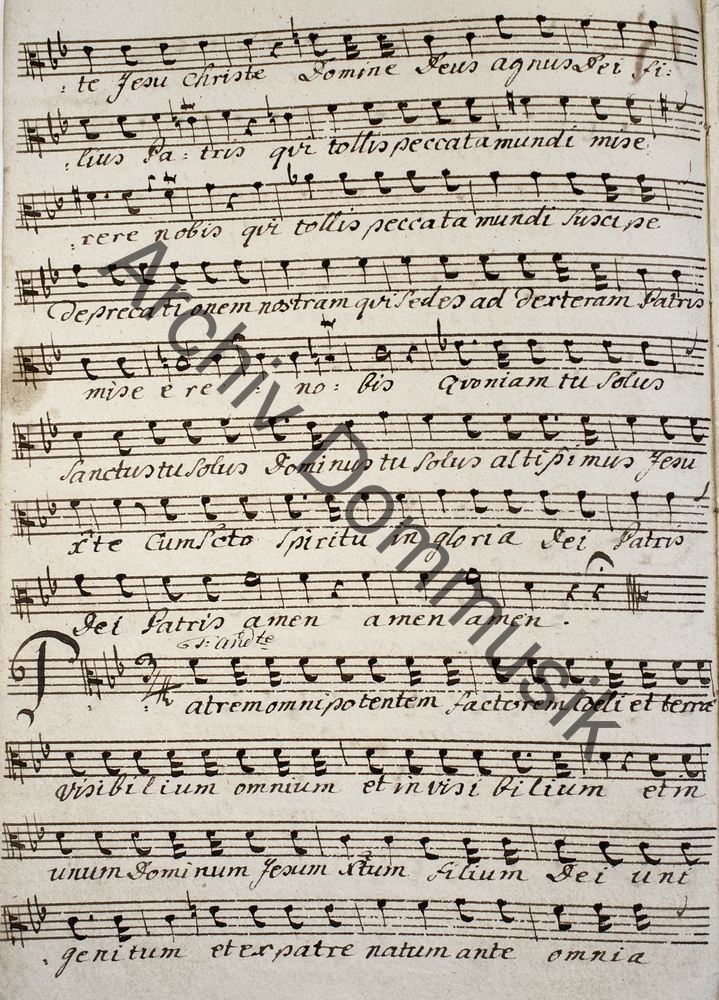 : te Jesu Christe Domine Deus agnus Dei fi:
: lius Pa: tris qui tollis peccata mundi mise
: rere nobis qui tollis peccata mundi suscipe
deprecationem nostram qui sedes ad dexteram Patris
mise e re : no: bis Quoniam tu solus
sanctus tu solus Dominus tu solus altissimus Jesu
xte Cum Scto spiritu in gloria Dei Patris
Dei Patris amen amen amen.
andte
Patrem omnipotentem factorem coeli et terrae
visibilium omnium et in visi bilium et in
unum Dominum Jesum Xtum filium Dei uni
: genitum et ex patre natum ante omnia
Archiv Dommusik